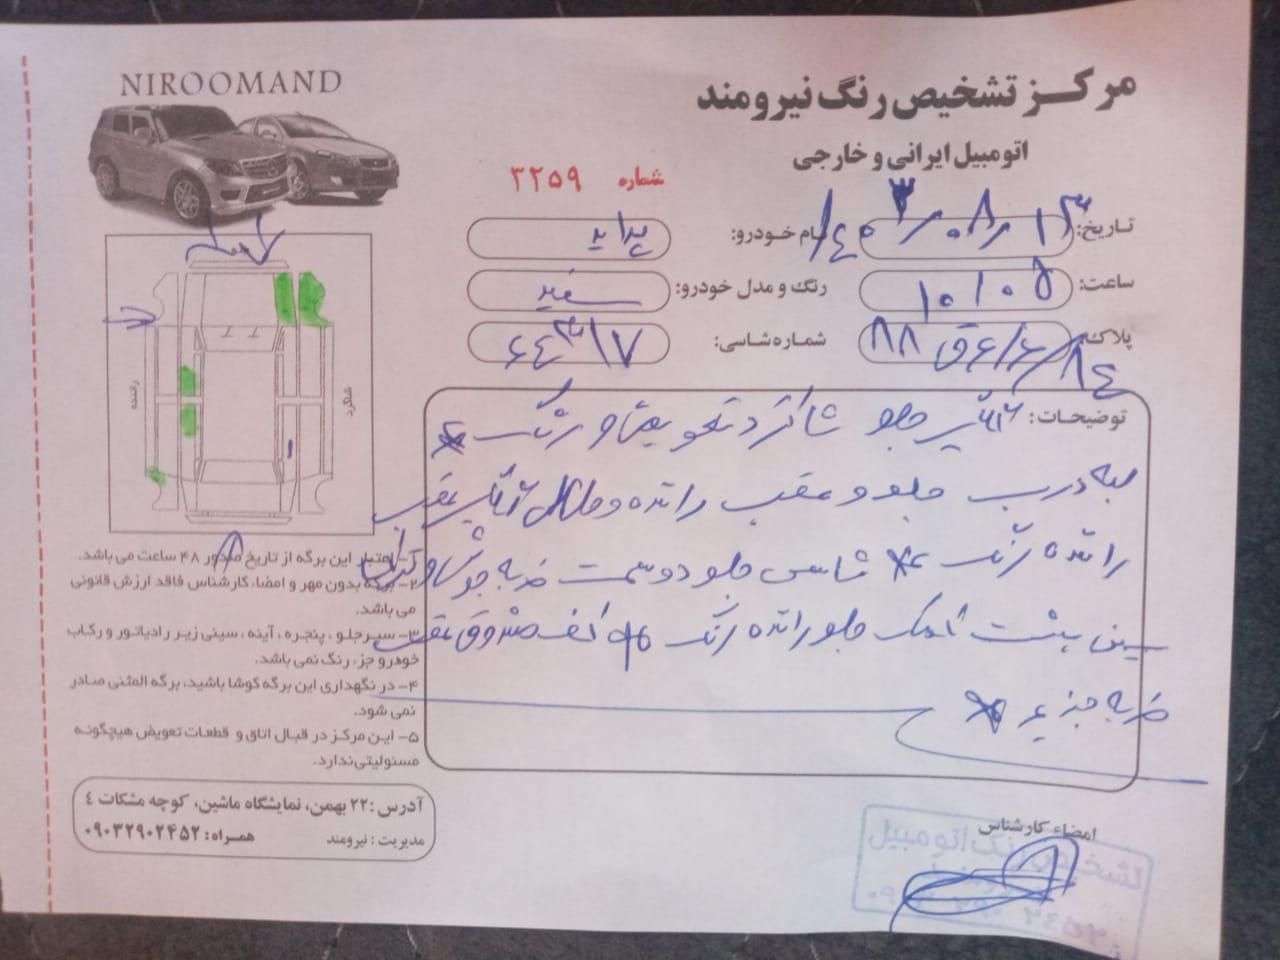 NIROOMAND
مرکز تشخیص رنگ نیرومند
اتومبیل ایرانی و خارجی
شماره ۳۲۵۹
تاریخ: ۱۴۰۳/۰۸/۱۳
نام خودرو: پراید
ساعت: ۱۰:۰۵
رنگ و مدل خودرو: سفید
پلاک:
شماره شاسی: ۶۴۳۱۷
راننده
شاگرد
توضیحات: گلگیر جلو شاگرد تعویض و رنگ *
لبه درب جلو و عقب راننده و گلگیر عقب
راننده رنگ * شاسی جلو دو سمت ضربه جوش و
سینی پشت جلو راننده رنگ * کف صندوق عقب
ضربه جزیی *
۱- اعتبار این برگه از تاریخ صدور ۴۸ ساعت می باشد.
۲- برگه بدون مهر و امضاء کارشناس فاقد ارزش قانونی
می باشد.
۳- سپر جلو ، پنجره ، آینه ، سینی زیر رادیاتور و رکاب
خودرو جز، رنگ نمی باشد.
۴- در نگهداری این برگه کوشا باشید، برگه المثنی صادر
نمی شود.
۵- این مرکز در قبال اتاق و قطعات تعویض هیچگونه
مسئولیتی ندارد.
آدرس : ۲۲ بهمن، نمایشگاه ماشین، کوچه مشکات ٤
مدیریت : نیرومند
همراه: ۰۹۰۳۲۹۰۲۴۵۲
امضاء کارشناس
تشخیص رنگ اتومبیل